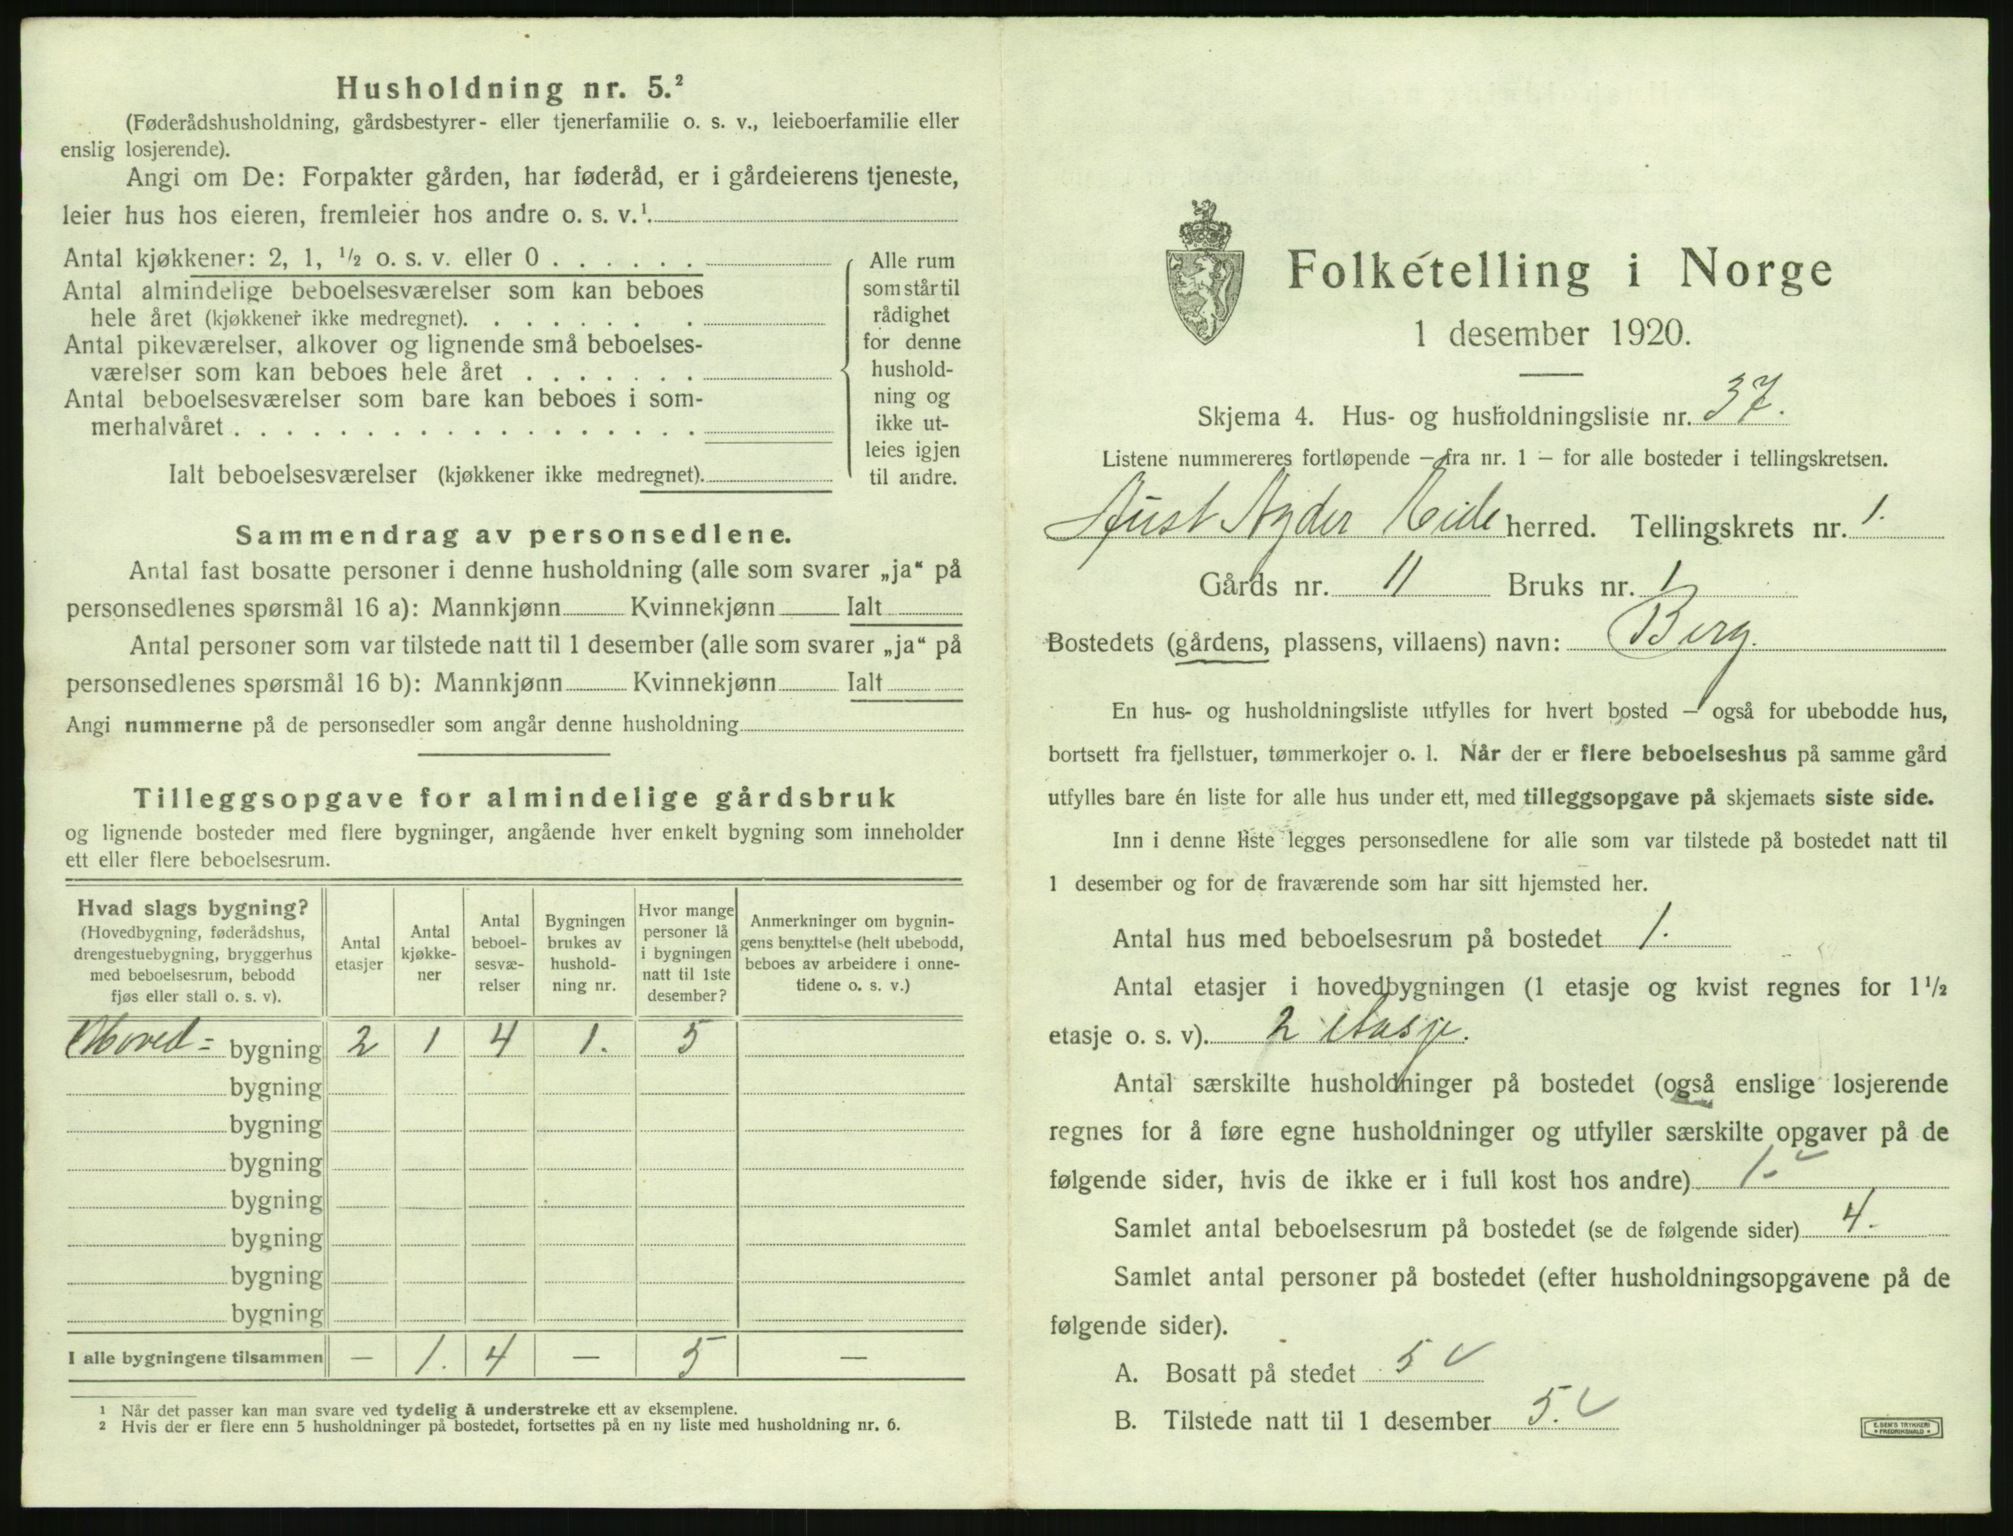 Husholdning nr. 5.²
(Føderådshusholdning, gårdsbestyrer- eller tjenerfamilie o. s. v., leieboerfamilie eller
enslig losjerende).
Angi om De: Forpakter gården, har føderåd, er i gårdeierens tjeneste,
leier hus hos eieren, fremleier hos andre o. s. v.¹
Antal kjøkkener: 2, 1, ½ o. s. v. eller 0 . . . . . .
Antal almindelige beboelsesværelser som kan beboes
hele året (kjøkkener ikke medregnet). . . . . . . . .
Antal pikeværelser, alkover og lignende små beboelses-
værelser som kan beboes hele året . . . . . . .
Antal beboelsesværelser som bare kan beboes i som-
merhalvåret . . . . . . . . . . . . . . . . . .
Ialt beboelsesværelser (kjøkkener ikke medregnet).
Alle rum
som står til
rådighet
for denne
hushold-
ning og
ikke ut-
leies igjen
til andre.
Sammendrag av personsedlene.
Antal fast bosatte personer i denne husholdning (alle som svarer „ja“ på
personsedlenes spørsmål 16 a): Mannkjønn Kvinnekjønn Ialt
Antal personer som var tilstede natt til 1 desember (alle som svarer „ja“ på
personsedlenes spørsmål 16 b): Mannkjønn Kvinnekjønn Ialt
Angi nummerne på de personsedler som angår denne husholdning
Tilleggsopgave for almindelige gårdsbruk
og lignende bosteder med flere bygninger, angående hver enkelt bygning som inneholder
ett eller flere beboelsesrum.
Hvad slags bygning?
(Hovedbygning, føderådshus,
drengestuebygning, bryggerhus
med beboelsesrum, bebodd
fjøs eller stall o. s. v).
Antal
etasjer
Antal
kjøkke-
ner
Antal
beboel-
sesvæ-
relser
Bygningen
brukes av
hushold-
ning nr.
Hvor mange
personer lå
i bygningen
natt til 1ste
desember?
Anmerkninger om bygnin-
gens benyttelse (helt ubebodd,
beboes av arbeidere i onne-
tidene o. s. v.)
Hoved= bygning 2 1 4 1. 5
bygning
bygning
bygning
bygning
bygning
bygning
bygning
I alle bygningene tilsammen — 1. 4 — 5 —
¹ Når det passer kan man svare ved tydelig å understreke ett av eksemplene.
² Hvis der er flere enn 5 husholdninger på bostedet, fortsettes på en ny liste med husholdning nr. 6.
Folketelling i Norge
1 desember 1920.
Skjema 4. Hus- og husholdningsliste nr. 37.
Listene nummereres fortløpende – fra nr. 1 – for alle bosteder i tellingskretsen.
Aust Agder Eide herred. Tellingskrets nr. 1.
Gårds nr. 11 Bruks nr. 1
Bostedets (gårdens, plassens, villaens) navn: Berg.
En hus- og husholdningsliste utfylles for hvert bosted – også for ubebodde hus,
bortsett fra fjellstuer, tømmerkojer o. l. Når der er flere beboelseshus på samme gård
utfylles bare én liste for alle hus under ett, med tilleggsopgave på skjemaets siste side.
Inn i denne liste legges personsedlene for alle som var tilstede på bostedet natt til
1 desember og for de fraværende som har sitt hjemsted her.
Antal hus med beboelsesrum på bostedet 1.
Antal etasjer i hovedbygningen (1 etasje og kvist regnes for 1½
etasje o. s. v). 2 etasje.
Antal særskilte husholdninger på bostedet (også enslige losjerende
regnes for å føre egne husholdninger og utfyller særskilte opgaver på de
følgende sider, hvis de ikke er i full kost hos andre) 1.-
Samlet antal beboelsesrum på bostedet (se de følgende sider) 4.
Samlet antal personer på bostedet (efter husholdningsopgavene på de
følgende sider).
A. Bosatt på stedet 5
B. Tilstede natt til 1 desember 5.
E. SEM'S TRYKKERI
• FREDRIKSHALD •